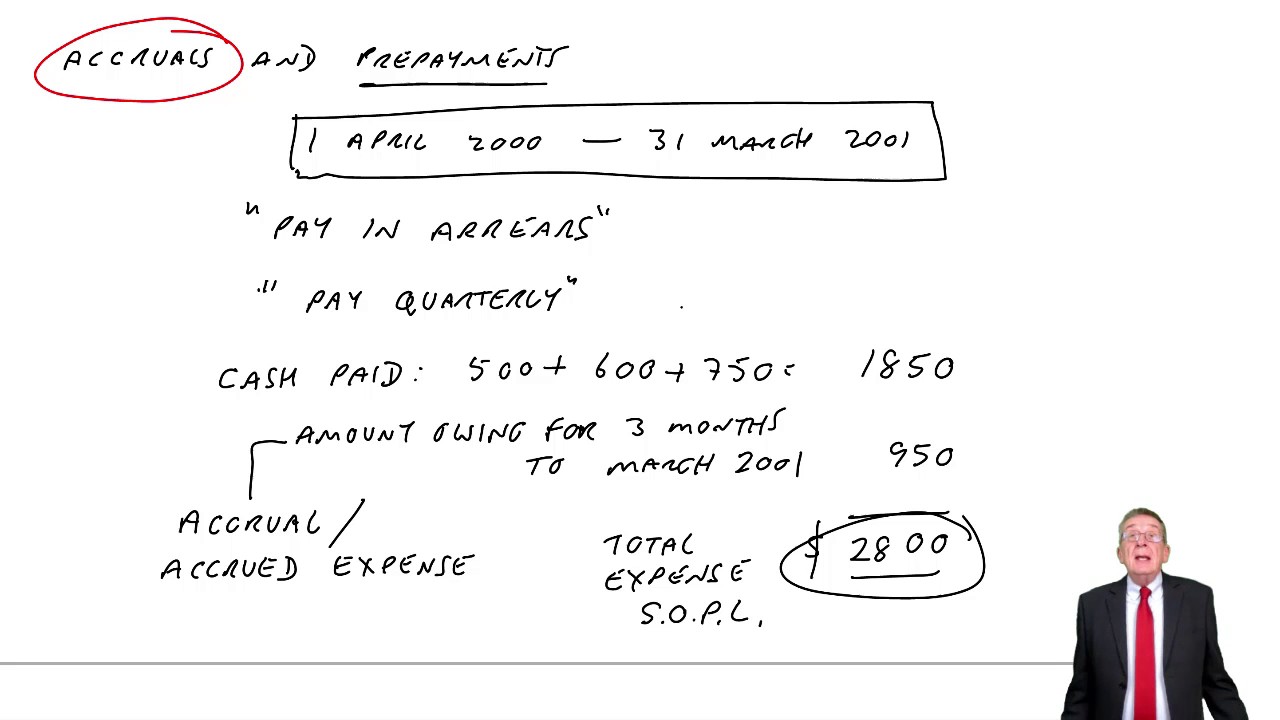 ACCRUALS AND PREPAYMENTS
1 APRIL 2000 — 31 MARCH 2001
"PAY IN ARREARS"
"PAY QUARTERLY"
CASH PAID: 500 + 600 + 750 = 1850
AMOUNT OWING FOR 3 MONTHS
TO MARCH 2001 950
ACCRUAL /
ACCRUED EXPENSE
TOTAL $ 2800
EXPENSE
S.O.P.L.